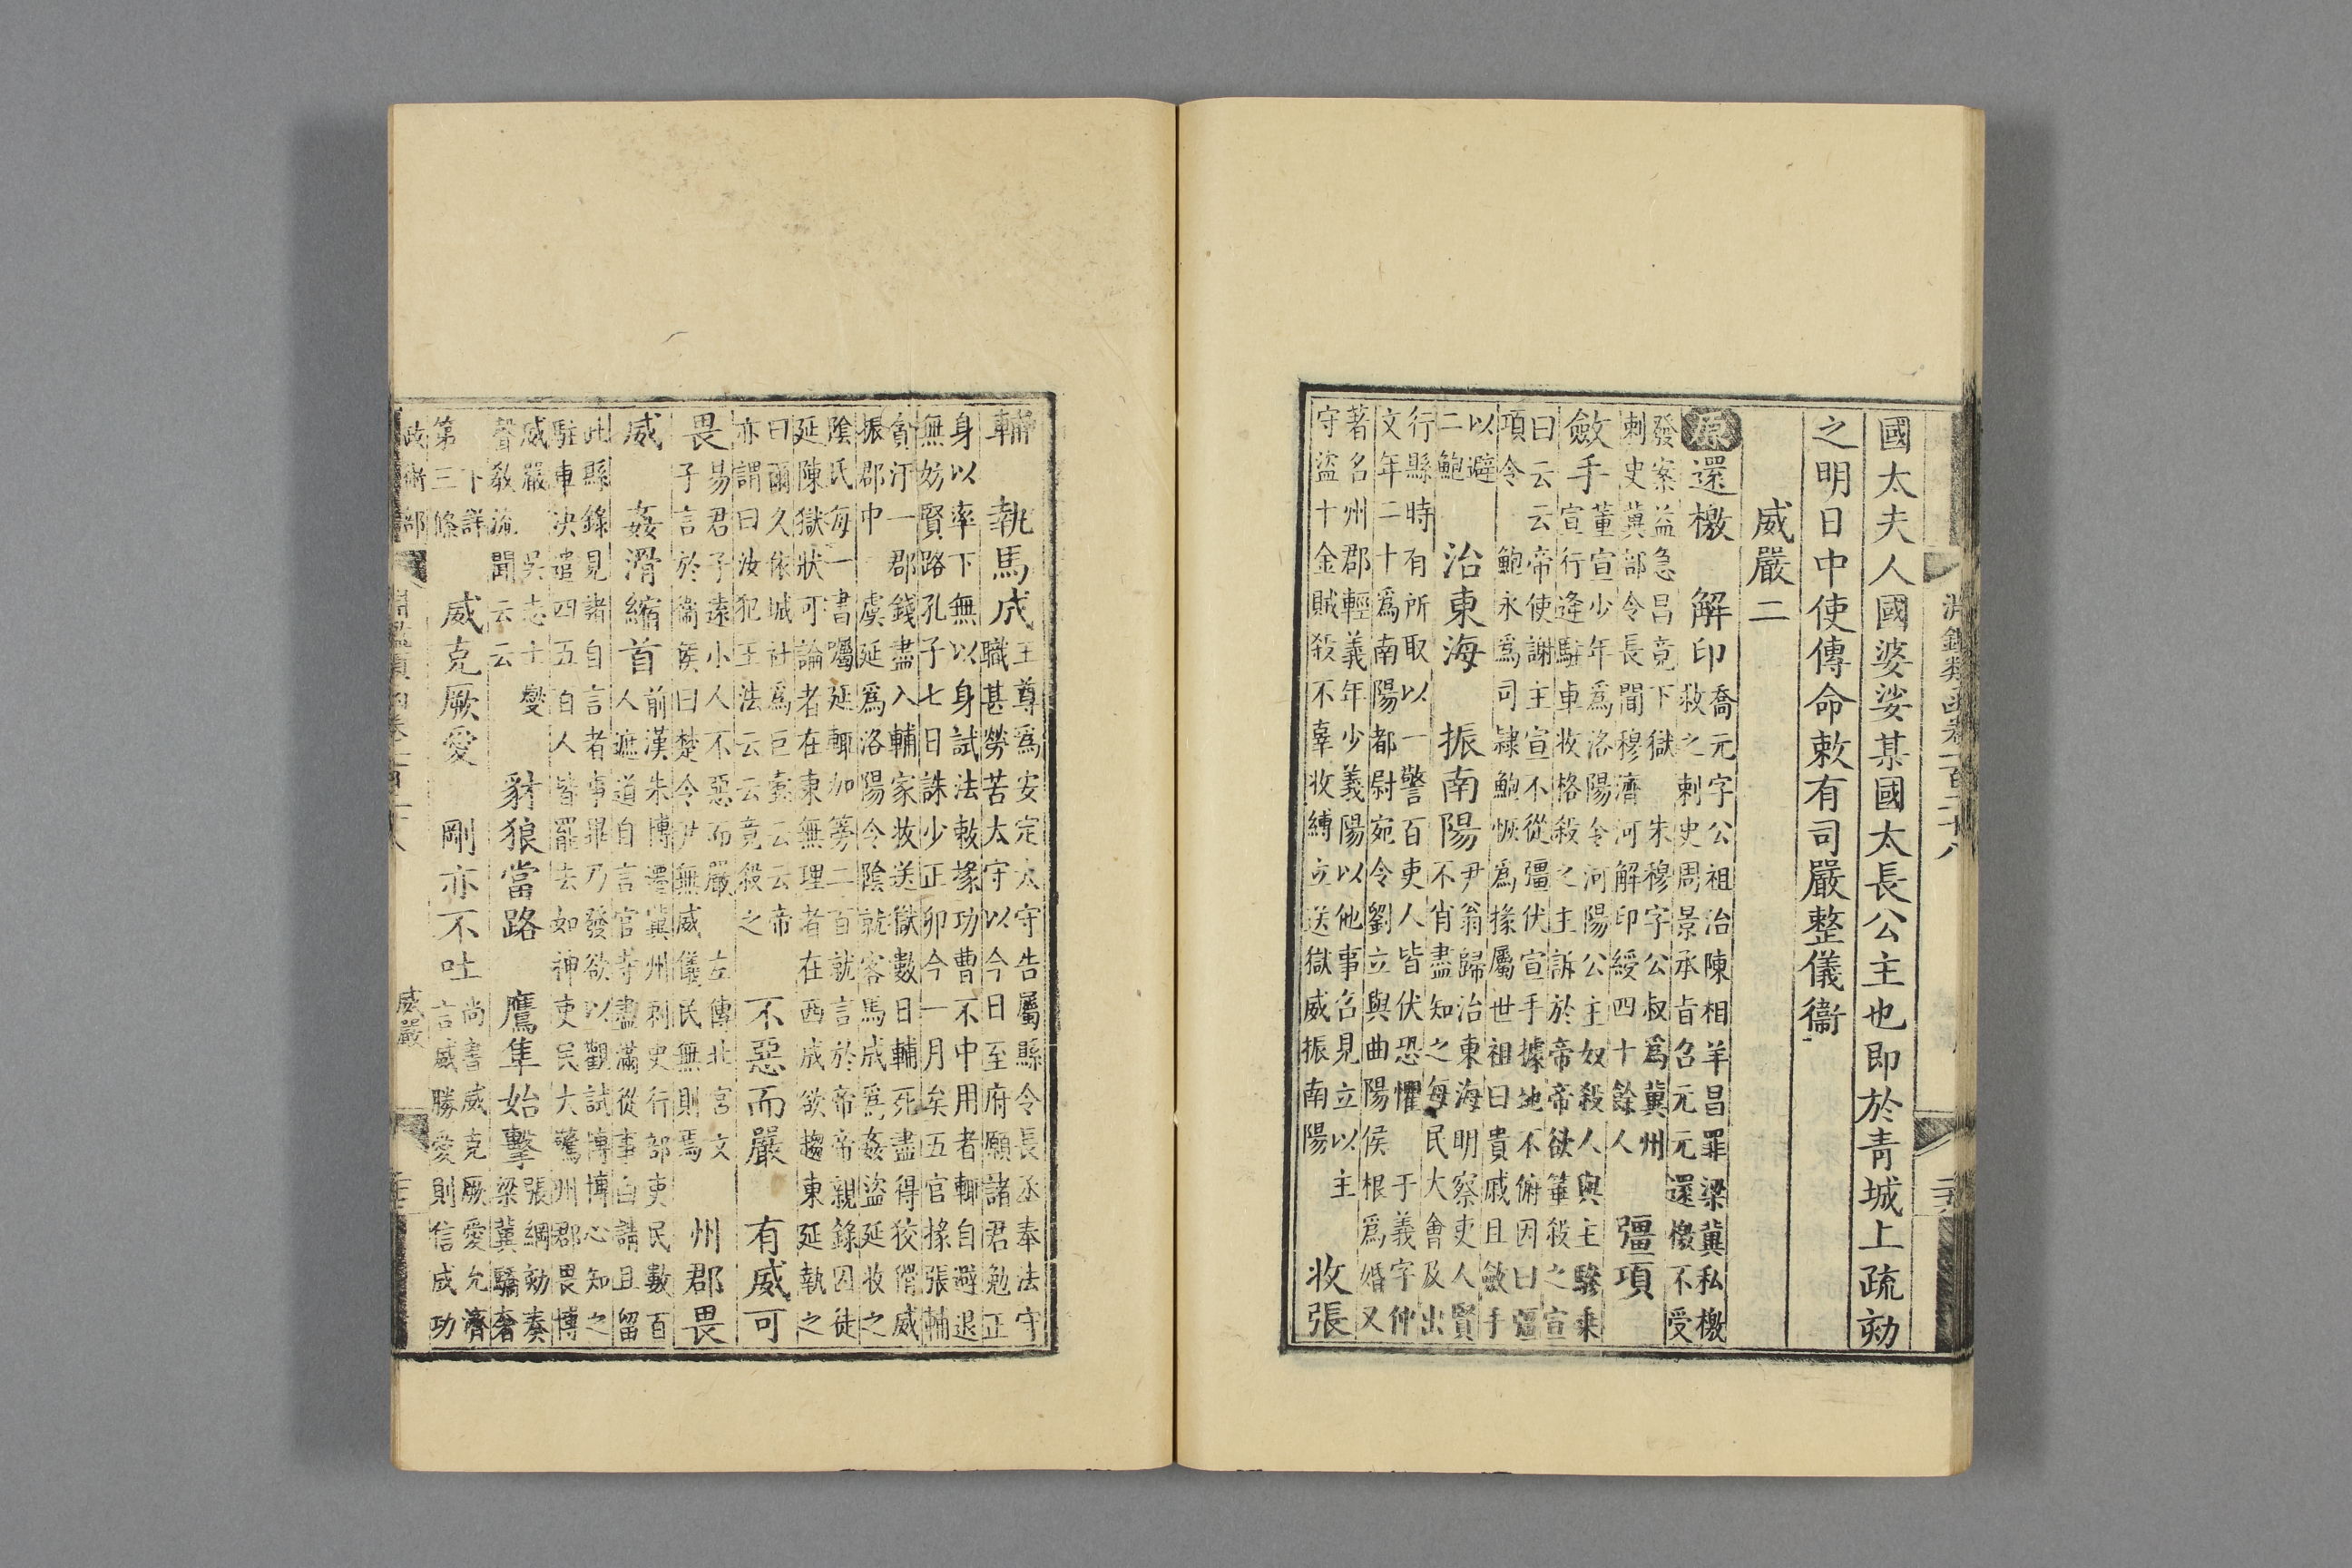 淵鑑類函卷一百二十八
國太夫人國婆娑某國太長公主也即於青城上疏劾
之明日中使傳命敕有司嚴整儀衞
威嚴二
原還檄 解印
喬元字公祖治陳相羊昌罪梁冀私檄
救之刺史周景承旨召元元還檄不受
發案益急昌竟下獄 朱穆字公叔爲冀州
刺史冀部令長聞穆濟河解印綬四十餘人
彊項
斂手
董宣少年爲洛陽令河陽公主奴殺人與主驂乗
宣行逢駐車收格殺之主訴於帝帝欲箠殺之宣
曰云云帝使謝主宣不從彊伏宣手據地不俯因曰彊
項令 鮑永爲司隷鮑恢爲掾屬世祖曰貴戚且斂手
以避
二鮑
治東海 振南陽
尹翁歸治東海明察吏人賢
不肖盡知之每民大會及出
行縣時有所取以一警百吏人皆伏恐懼 于義字仲
文年二十爲南陽都尉宛令劉立與曲陽侯根爲婚又
著名州郡輕義年少義陽以他事召見立以主
守盜十金賊殺不辜收縛立送獄威振南陽
收張
輔 執馬成
王尊爲安定太守告屬縣令長丞奉法守
職甚勞苦太守以今日至府願諸君勉正
身以率下無以身試法敕掾功曹不中用者輒自避退
無妨賢路孔子七日誅少正卯今一月矣五官掾張輔
貪汙一郡錢盡入輔家收送獄數日輔死盡得狡猾威
振郡中 虞延爲洛陽令陰就客馬成爲姦盜延收之
陰氏每一書囑延輒加篣二百就言於帝帝親錄囚徒
延陳獄狀可論者在東無理者在西成欲趨東延執之
曰爾久依城社爲巨蠹云云帝
亦謂曰汝犯王法云云竟殺之
不惡而嚴 有威可
畏
易君子遠小人不惡而嚴 左傳北宮文
子言於衞侯曰楚令尹無威儀民無則焉
州郡畏
威 姦滑縮首
前漢朱博遷冀州刺史行部吏民數百
人遮道自言官寺盡滿從事白請且留
此縣錄見諸自言者事畢乃發欲以觀試博博心知之
駐車決遣四五百人皆罷去如神吏民大驚州郡畏博
威嚴 吳志士燮
聲敎流聞云云
豺狼當路 鷹隼始擊
張綱劾奏
梁冀驕奢
下詳
第三條
威克厥愛 剛亦不吐
尚書威克厥愛允濟
言威勝愛則信成功
政術部 淵鑑類函卷一百二十八 威嚴